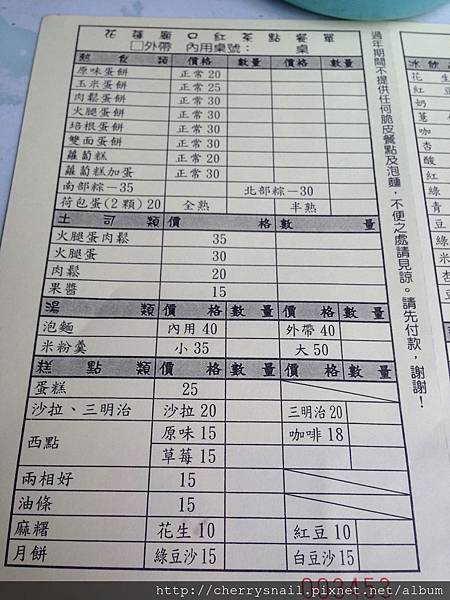 花蓮廟口紅茶點餐單
□外帶 內用桌號: 桌
熱食類 價格 數量 價格 數量
原味蛋餅 正常 20
玉米蛋餅 正常 25
肉鬆蛋餅 正常 30
火腿蛋餅 正常 30
培根蛋餅 正常 30
雙面蛋餅 正常 30
蘿蔔糕 正常 20
蘿蔔糕加蛋 正常 30
南部粽－35 北部粽－30
荷包蛋(2顆) 20 全熟 半熟
土司類 價格 數量
火腿蛋肉鬆 35
火腿蛋 30
肉鬆 20
果醬 15
湯類 價格 數量 價格 數量
泡麵 內用 40 外帶 40
米粉羹 小 35 大 50
糕點類 價格 數量 價格 數量
蛋糕 25
沙拉、三明治 沙拉 20 三明治 20
西點 原味 15 咖啡 18
草莓 15
兩相好 15
油條 15
麻糬 花生 10 紅豆 10
月餅 綠豆沙 15 白豆沙 15
過年期間不提供任何脆皮餐點及泡麵，不便之處請見諒。請先付款，謝謝！
冰飲
花生
紅
奶
薏
咖
杏
酸
紅
綠
青
豆
綠
米
杏
093453
http://cherrysnail.pixnet.net/album